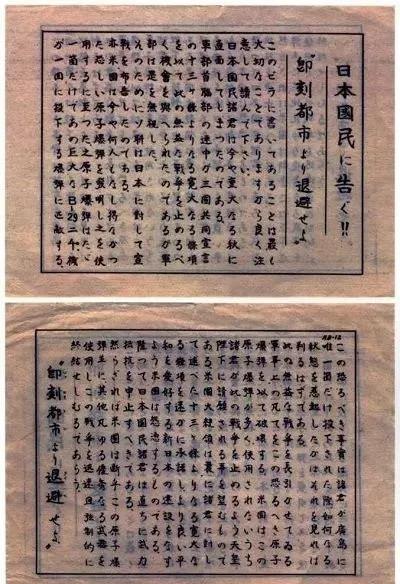 日本國民に告ぐ!!
"即刻都市より退避せよ"
このビラに書いてあることは最も
大切なことでありますから良く注
意して讀んで下さい。
日本國民諸君は今や重大なる秋に
直面してしまつたのである。
軍部首腦部の連中が三國共同宣言
の十三ヶ條よりなる寛大なる條項
を以て此の無益な戰爭を止めるべ
く機會を與へられたのであるが軍
部は是を無視した。
そのためにソ聯は日本に對して宣
戰を布告したのである。
亦米國は今や何人もなし得なかつ
た恐しい原子爆彈を發明し之を使
用するに至つた。之原子爆彈はたゞ
一箇だけであの巨大なB-29二千機
が一回に投下する爆彈に匹敵する。
AB-12
この恐るべき事實は諸君が廣島に
唯一箇だけ投下された際如何なる
狀態を惹起したかはそれを見れば
判るはずである。
此の無益な戰爭を長引かせてゐる
軍事上の凡てをこの恐るべき原子
爆彈を以て破壊する。米國はこの
原子爆彈が多く使用されないうち
諸君が此の戰爭を止めるよう天皇
陛下に請願される事を望むもので
ある。米國大統領は曩に諸君に對し
て述べた十三ヶ條よりなる寛大な
る條項を速かに承諾しより良い平
和を愛好する新日本の建設をなす
よう米國は慫慂するのである。
つて日本國民諸君は直ちに武力
抵抗を中止すべきである。
然らざれば米國は斷乎この原子爆
彈並に其他凡ゆる優秀なる武器を
使用しこの戰爭を迅速且強制的に
終結せしむるであらう。
"即刻都市より退避せよ"